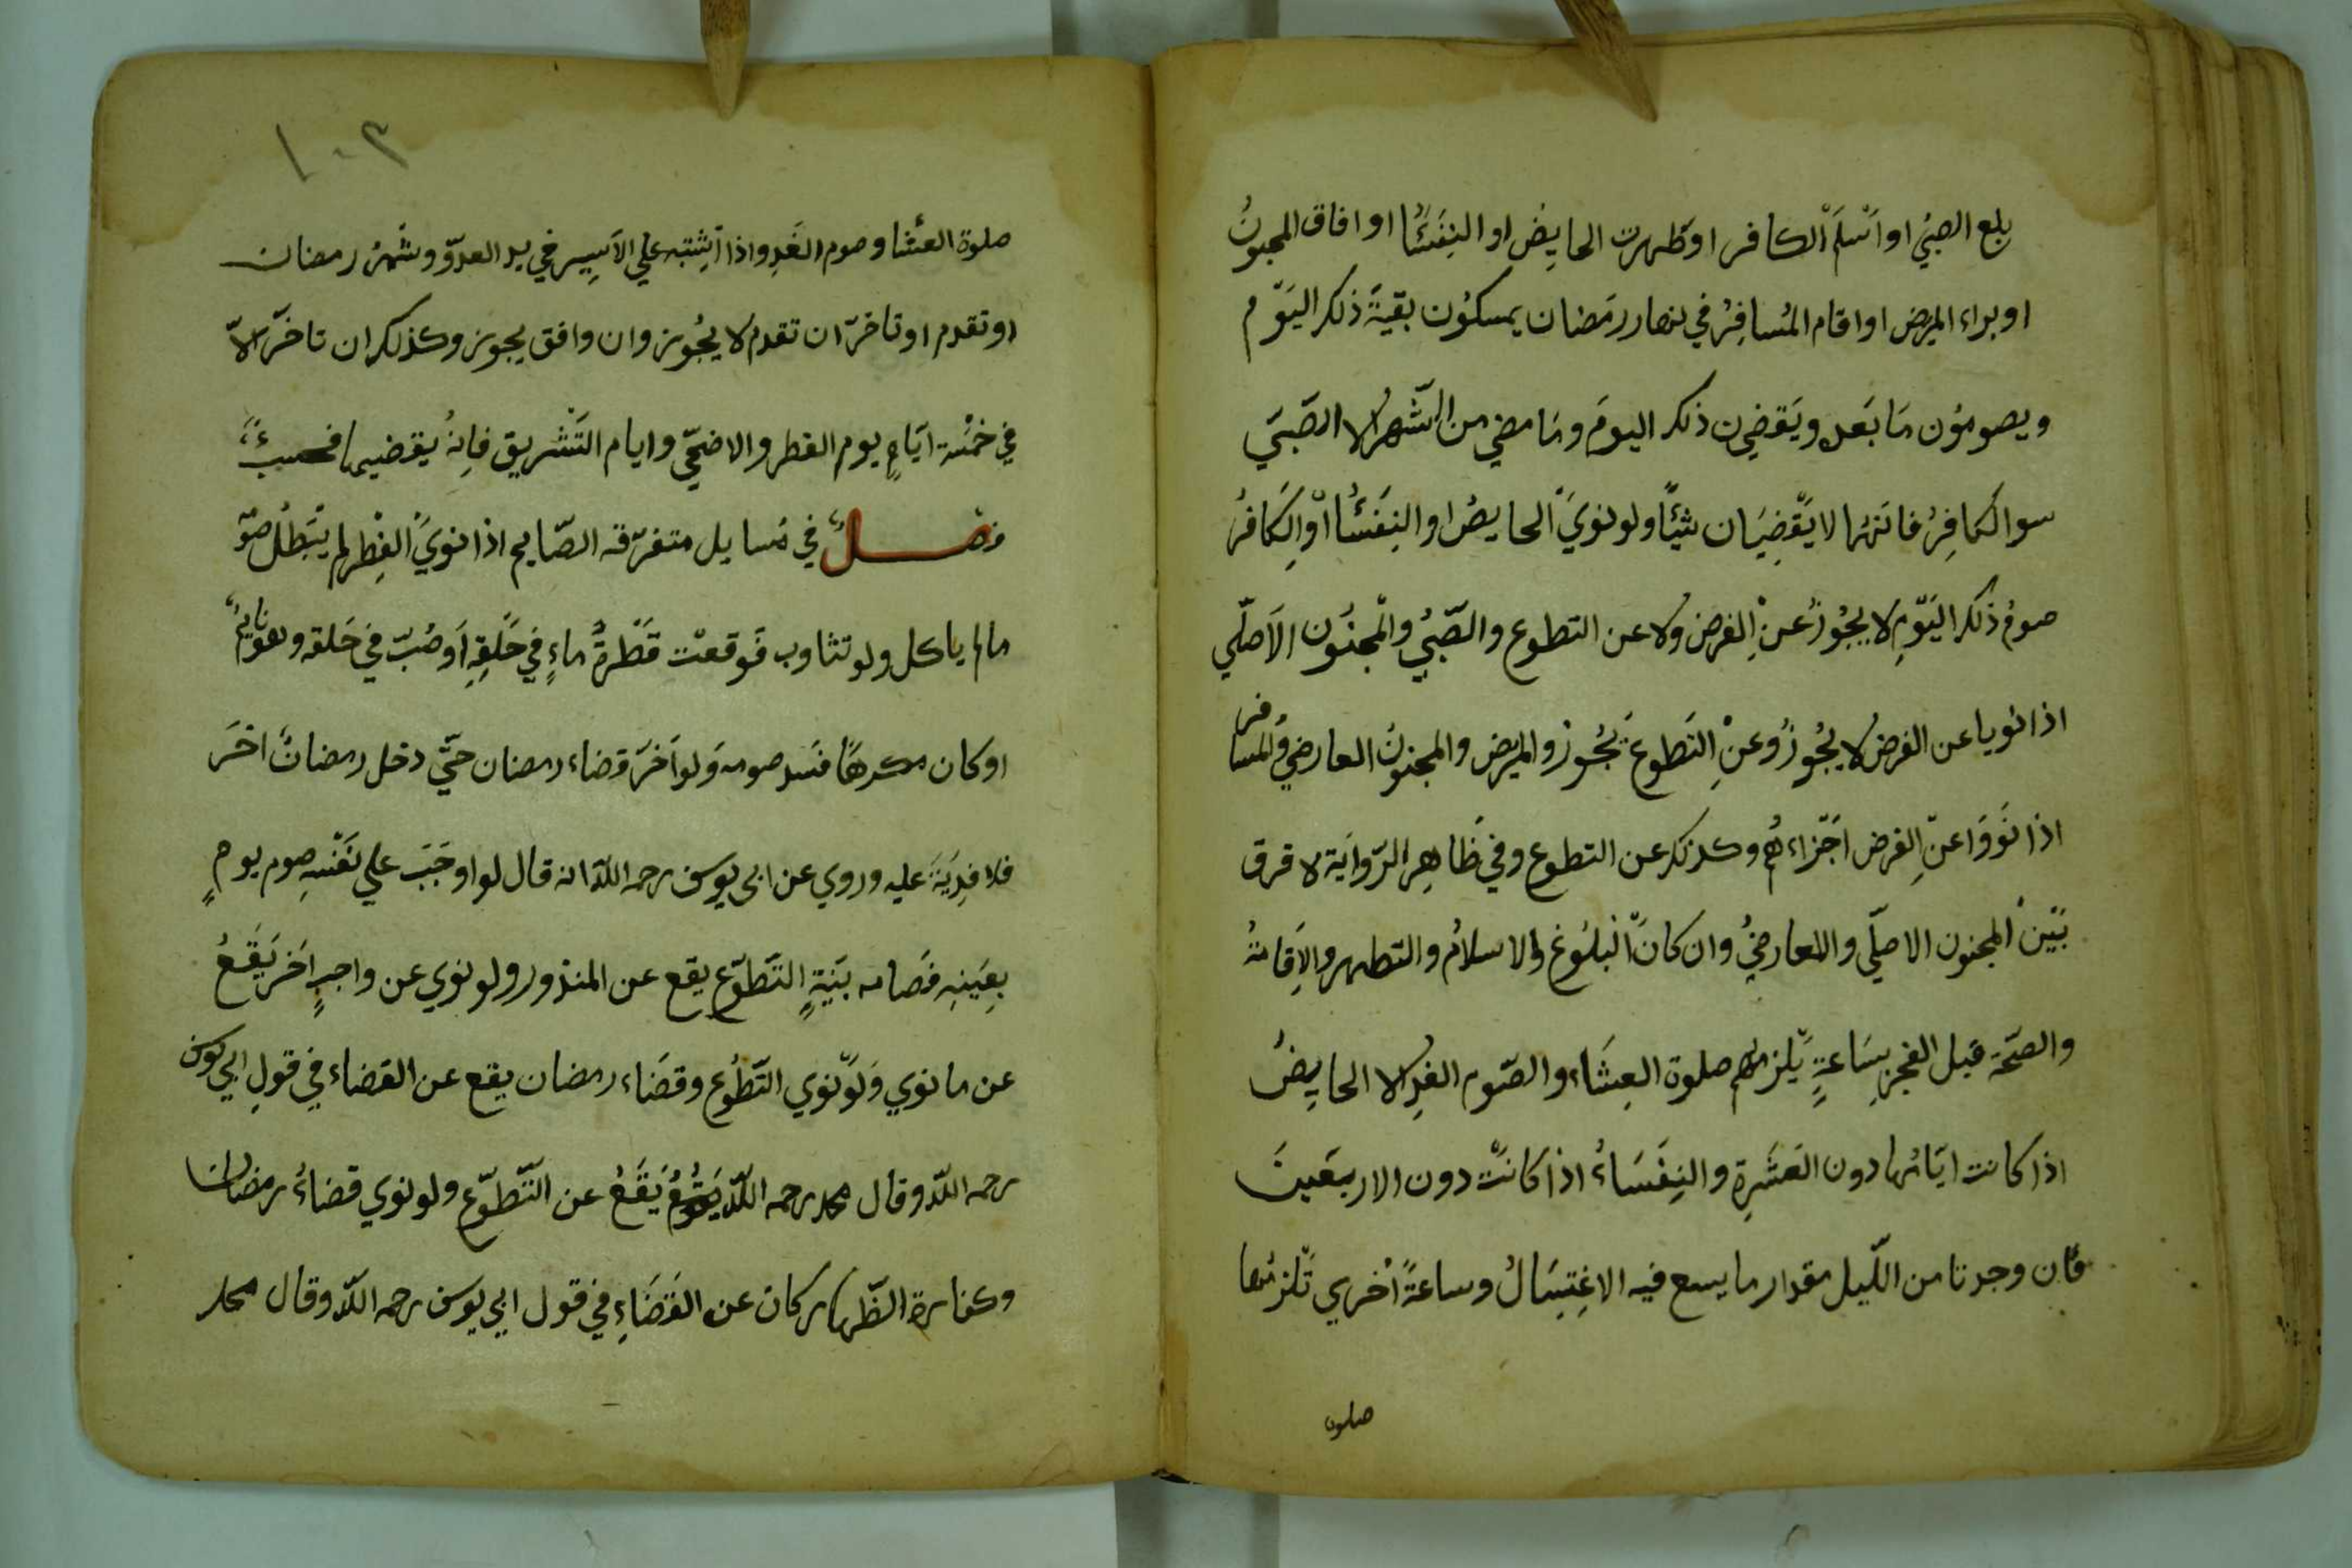 بلع الصبيُ او اَسْلَمَ الكافر اوطَهرت الحايِضُ او النِفَسَُا او افاق المجنونُ
او براء المريض اواقام المُسافِرُ في نهار رمَضان يمسكوُن بقيةَ ذلك اليَوْم
ويصوموُن مَا بَعد ويَقضِيُ ن ذلك اليومَ ومَا مضي من الشّهر الا الصَّبيَ
سوا الكافِرُ فانَهُما لا يَقْضِيَان شَيْئًا ولو نويَ الحايِضُ او النِفَسَُا اوْ الِكَافرُ
صومُ ذلك اليَوْمِ لا يجُوز عَنْ الِفرض ولا عن التطوع والصَّبيُ والْمجنُون الاَصلّي
اذا نويا عن الفرض لا يجُوزُ وعنْ التَطوع يَجُوز والمريض والمجنونُ العارضيُ والمسافر
اذا نَووَا عنّ الِفرض اَجْزاءهُم وكذلك عن التطوع وفي ظَاهِر الرّوايَة لا فرق
بَيْنَ المجنون الاصلّي والعارضيُ وان كانَ البلُوغ والاسلامُ والتطهر والاِقامةُ
والصّحة قبل الفجر بِسَاعةٍ يلزمهم صلوة العِشَاء والصّوم الغدِ الا الحايِضُ
اذا كانت ايَامُها دون العَشَرِة والنِفَسَاءُ اذا كانتْ دون الاربعَينَ
فان وجدتا من اللّيل مقدار ما يسع فيه الاغِتسَالُ وساعةً اُخري تَلزمُها
صلوة
١٠٣
صلوة العشا وصوم الغَدِ واذا اَشتبه علي الاَسِير في يد العدوّ وشَهرُ رمضان
اوتقدم اوتاخرّ ان تقدم لا يجُوز وان وافق يجوز وكذلك ان تاخَرّ الاّ
في خمْسة ايَامٍ يوم الفطر والاضحَي وايام التَشْريق فاِنهُ يقضيها فحسبُ
فصلٌ في مَسايل متفرّقه الصّايم اذا نويَ الفِطر لم يَبْطُل صوْ
مالم ياكل ولو تثاوب فَوقعتْ قَطْرةُ ماءٍ في حَلقِهِ اَوصُبّ في حَلقه وهو نايمٌ
اوكان مكرهًا فسَد صومه وَلو اَخرَ قضاء رمضان حتّيَ دخل رمضانُ اخرَ
فلا فِديَةَ عليه وروي عن ابي يوسف رحمه اللّه انه قال لو اوجَبَ علي نَفْسِهِ صوم يومٍ
بِعَينِه فصَامه بنَيةٍ التَطوّع يقع عن المنذور ولو نوي عن واجبٍ اَخر يَقَعُ
عن ما نوي وَلوْ نوي التَّطَوُع وقضَاء رمضان يقع عن القضاء في قولِ ابي يوسف
رحمه اللّه وقال محمد رحمه اللّه يَقَعُ عن التّطوّع ولو نوي قضاءُ رمضان
وكفارة الظّهار كان عن القَضَاءِ في قول ابي يوسف رحمه اللّه وقال محمد